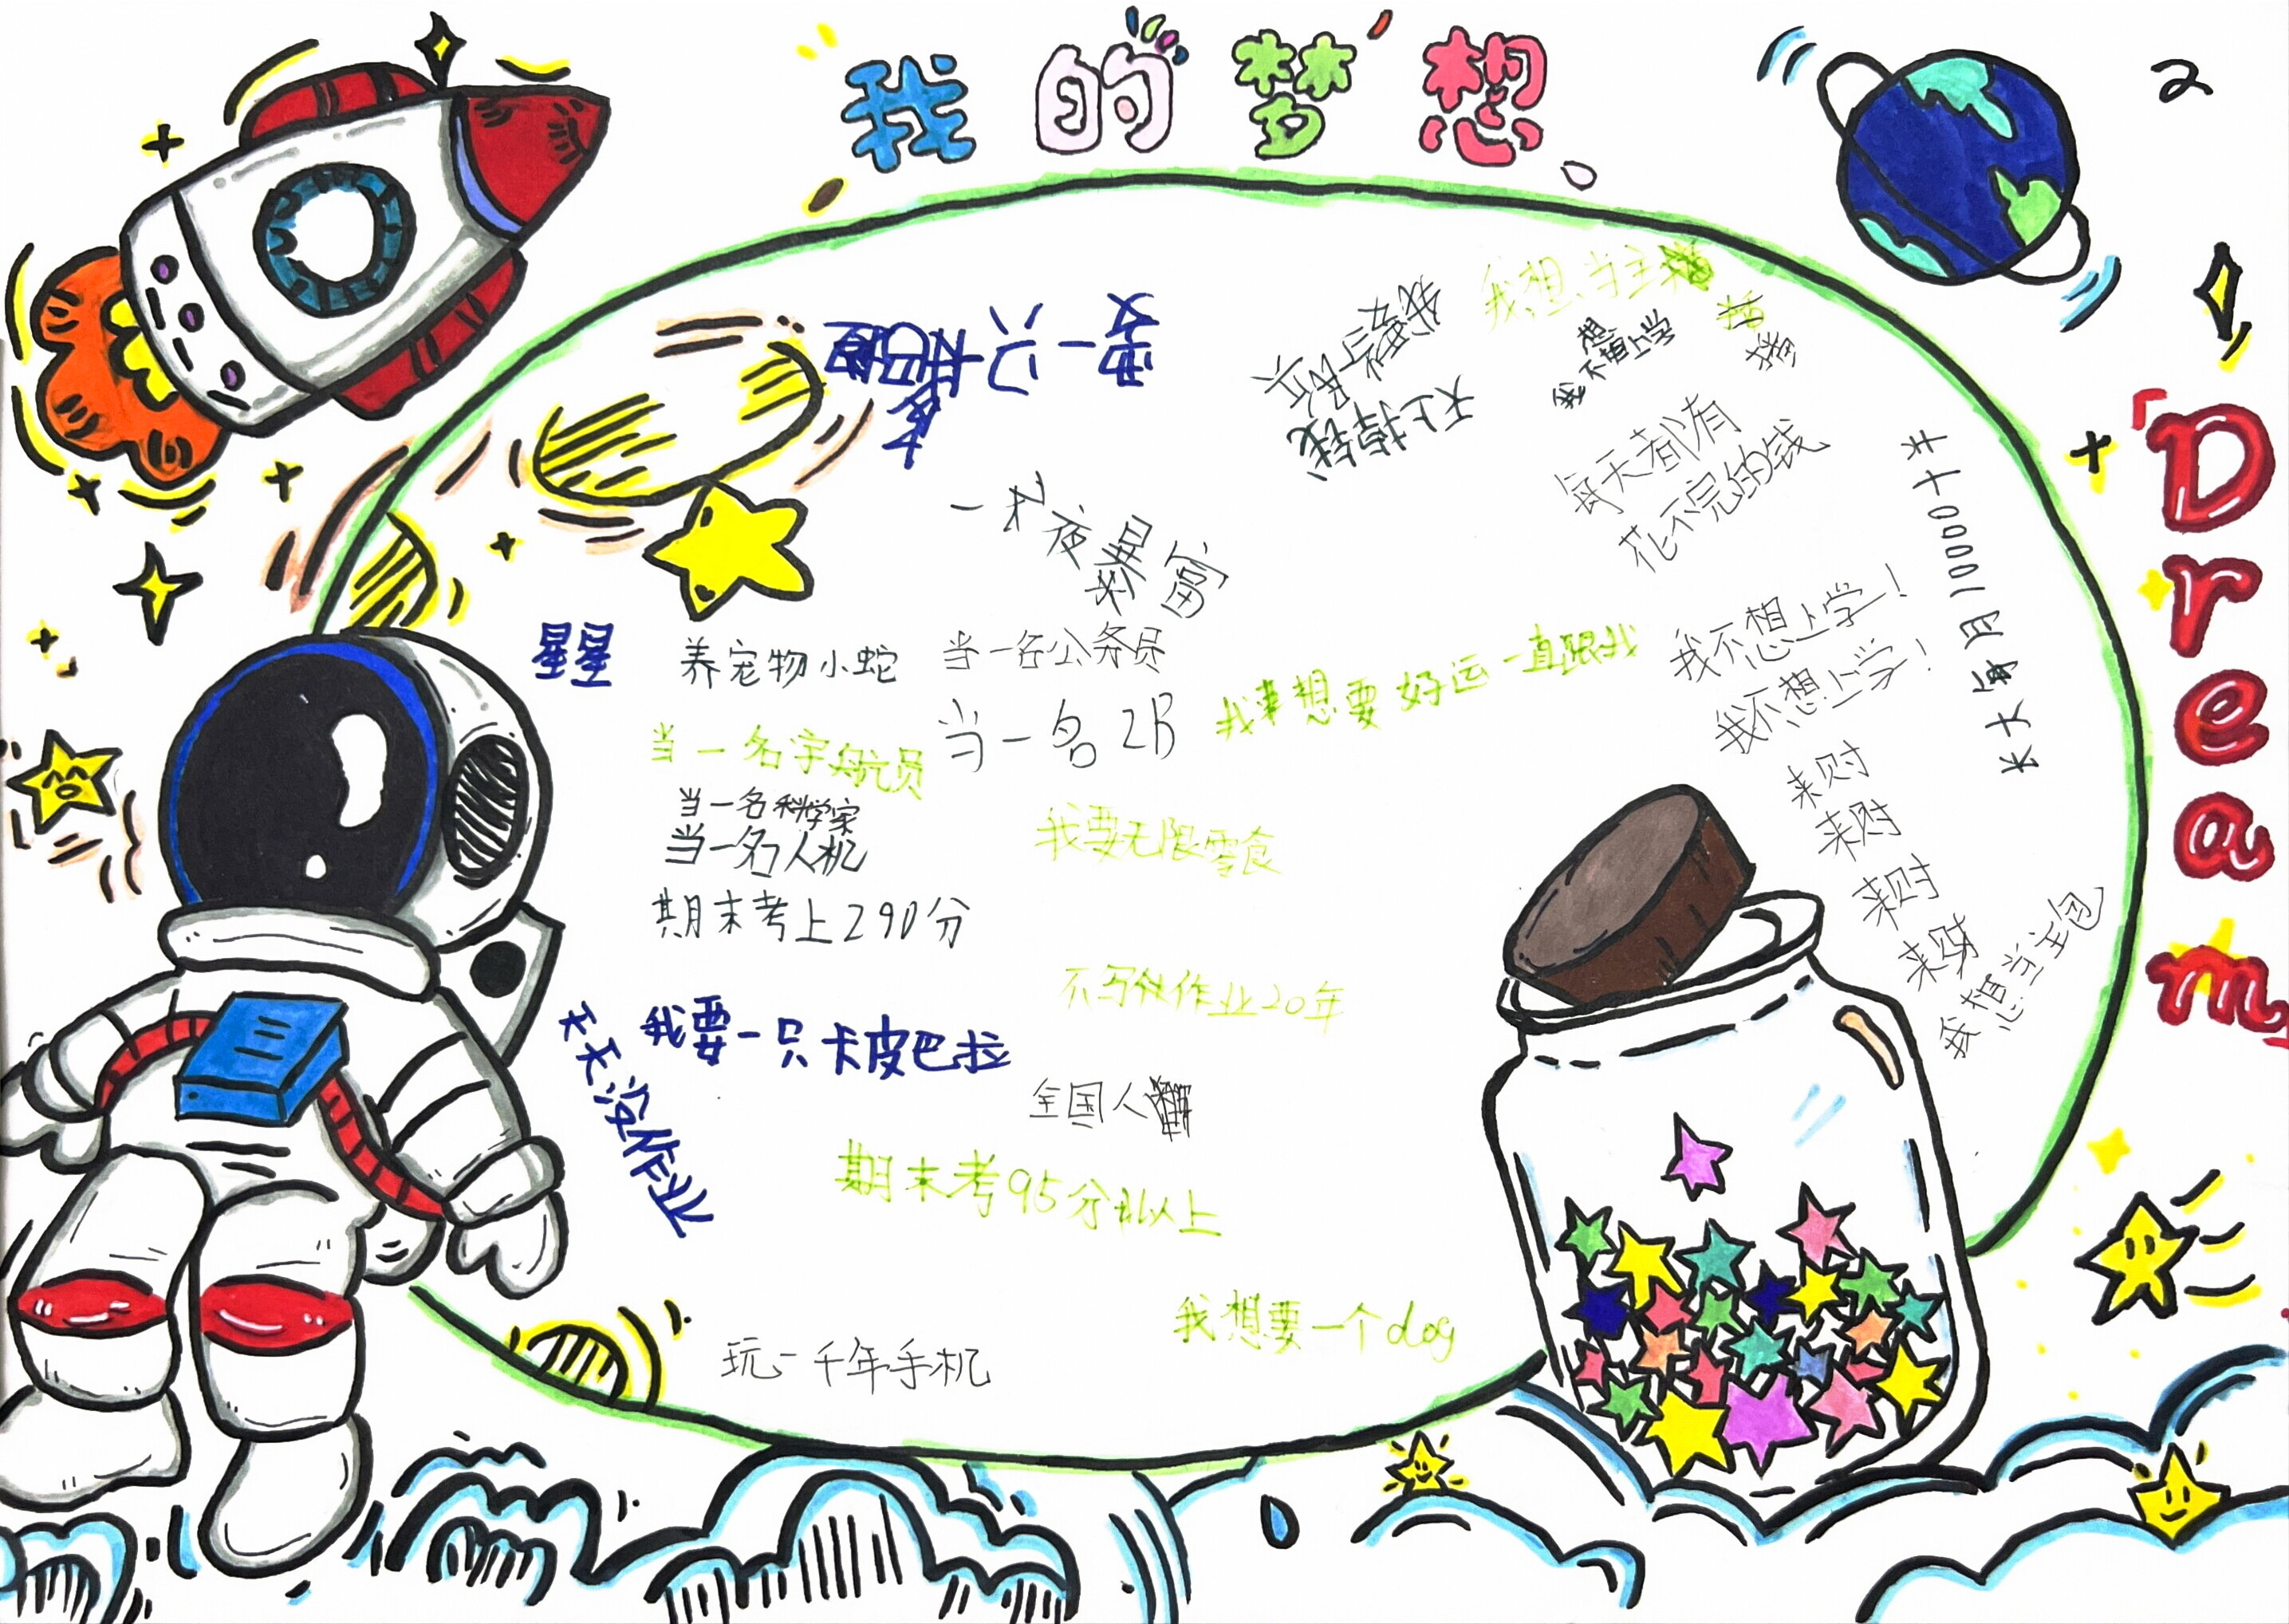 我的梦想
2
Dream
我想当主播
天上掉钱
我不想上学
每天都有
花不完的钱
一夜暴富
长大每月10000千
星星
养宠物小蛇
当一名公务员
我不想上学！
我不想上学！
我想要好运一直跟我
当一名宇航员
当一名2B
当一名科学家
当一名人机
我要无限零食
来财
来财
来财
来财
我想当主包
期末考上290分
不写作业20年
我要一只卡皮巴拉
天天没作业
全国人
期末考95分以上
我想要一个dog
玩一千年手机